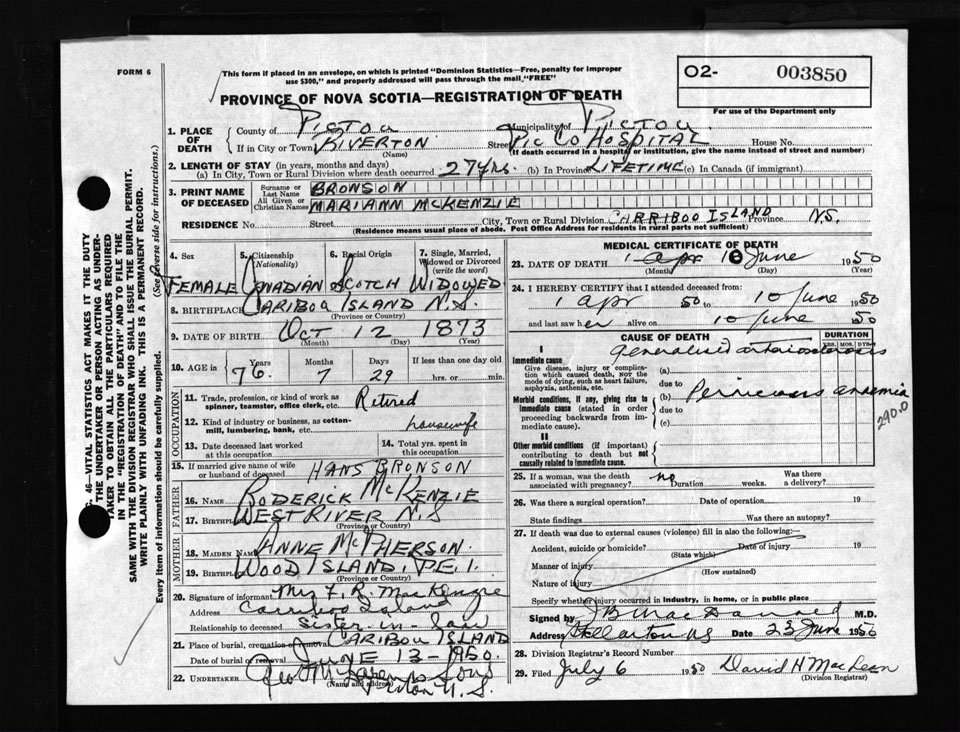 FORM 6
This form if placed in an envelope, on which is printed "Dominion Statistics—Free, penalty for improper
use $300," and properly addressed will pass through the mail "FREE"
PROVINCE OF NOVA SCOTIA—REGISTRATION OF DEATH
O2- 003850
For use of the Department only
1. PLACE OF DEATH
County of PICTOU Municipality of PICTOU
If in City or Town RIVERTON Street PIC CO HOSPITAL House No.
(Name) (If death occurred in a hospital or institution, give the name instead of street and number)
2. LENGTH OF STAY (in years, months and days)
(a) In City, Town or Rural Division where death occurred 27 yrs. (b) In Province LIFETIME (c) In Canada (if immigrant)
3. PRINT NAME OF DECEASED
Surname or Last Name BRONSON
All Given or Christian Names MARIANN MCKENZIE
RESIDENCE No. Street City, Town or Rural Division CARRIBOO ISLAND Province N.S.
(Residence means usual place of abode. Post Office Address for residents in rural parts not sufficient)
4. Sex 5. Citizenship (Nationality) 6. Racial Origin 7. Single, Married, Widowed or Divorced (write the word)
FEMALE CANADIAN SCOTCH WIDOWED
8. BIRTHPLACE CARIBOU ISLAND N.S.
(Province or Country)
9. DATE OF BIRTH Oct 12 1873
(Month) (Day) (Year)
10. AGE in Years Months Days If less than one day old
76 7 29 hrs. or min.
OCCUPATION
11. Trade, profession, or kind of work as spinner, teamster, office clerk, etc. Retired
12. Kind of industry or business, as cotton-mill, lumbering, bank, etc. housewife
13. Date deceased last worked at this occupation
14. Total yrs. spent in this occupation
15. If married give name of wife or husband of deceased HANS BRONSON
FATHER
16. Name RODERICK MCKENZIE
17. Birthplace WEST RIVER N.S
(Province or Country)
MOTHER
18. Maiden Name ANNE MCPHERSON.
19. Birthplace WOOD ISLAND, P.E.I.
(Province or Country)
20. Signature of informant Mrs F. R. MacKenzie
Address Carriboo Island
Relationship to deceased Sister-in-law
21. Place of burial, cremation or removal CARIBOU ISLAND
Date of burial or removal JUNE 13-1950.
22. UNDERTAKER Geo McLaren & Sons
(Name and address)
Pictou N.S.
MEDICAL CERTIFICATE OF DEATH
23. DATE OF DEATH 1 apr 10 June 1950
(Month) (Day) (Year)
24. I HEREBY CERTIFY that I attended deceased from:
1 apr 50 to 10 June 1950
and last saw her alive on 10 June 1950
CAUSE OF DEATH DURATION
YRS. MOS. DYS.
I
Immediate cause
Give disease, injury or complication which caused death, not the mode of dying, such as heart failure, asphyxia, asthenia, etc.
(a) Generalised arteriosclerosis
due to
Morbid conditions, if any, giving rise to immediate cause (stated in order proceeding backwards from immediate cause).
(b) Pernicious anaemia
due to
(c)
290.0
II
Other morbid conditions (if important) contributing to death but not causally related to immediate cause.
25. If a woman, was the death associated with pregnancy? no Duration weeks. Was there a delivery?
26. Was there a surgical operation? Date of operation 19
State findings Was there an autopsy?
27. If death was due to external causes (violence) fill in also the following:—
Accident, suicide or homicide? Date of injury 19
(State which)
Manner of injury
(How sustained)
Nature of injury
Specify whether injury occurred in industry, in home, or in public place
Signed by M.D.
Address Stellarton NS Date 23 June 1950
28. Division Registrar's Record Number
29. Filed July 6 1950 David H MacLean
(Division Registrar)
46—VITAL STATISTICS ACT MAKES IT THE DUTY
THE UNDERTAKER OR PERSON ACTING AS UNDER-
TAKER TO OBTAIN ALL THE PARTICULARS REQUIRED
IN THE "REGISTRATION OF DEATH" AND TO FILE THE
SAME WITH THE DIVISION REGISTRAR WHO SHALL ISSUE THE BURIAL PERMIT.
WRITE PLAINLY WITH UNFADING INK. THIS IS A PERMANENT RECORD.
Every item of information should be carefully supplied. (See reverse side for instructions.)